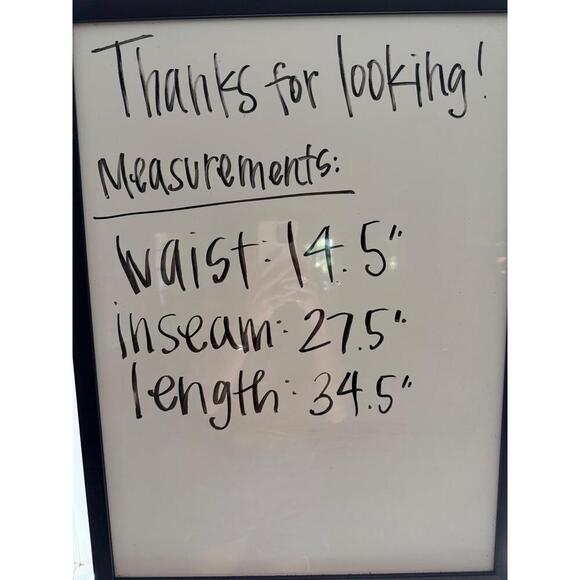 Thanks for looking!
Measurements:
waist: 14.5"
inseam: 27.5"
length: 34.5"